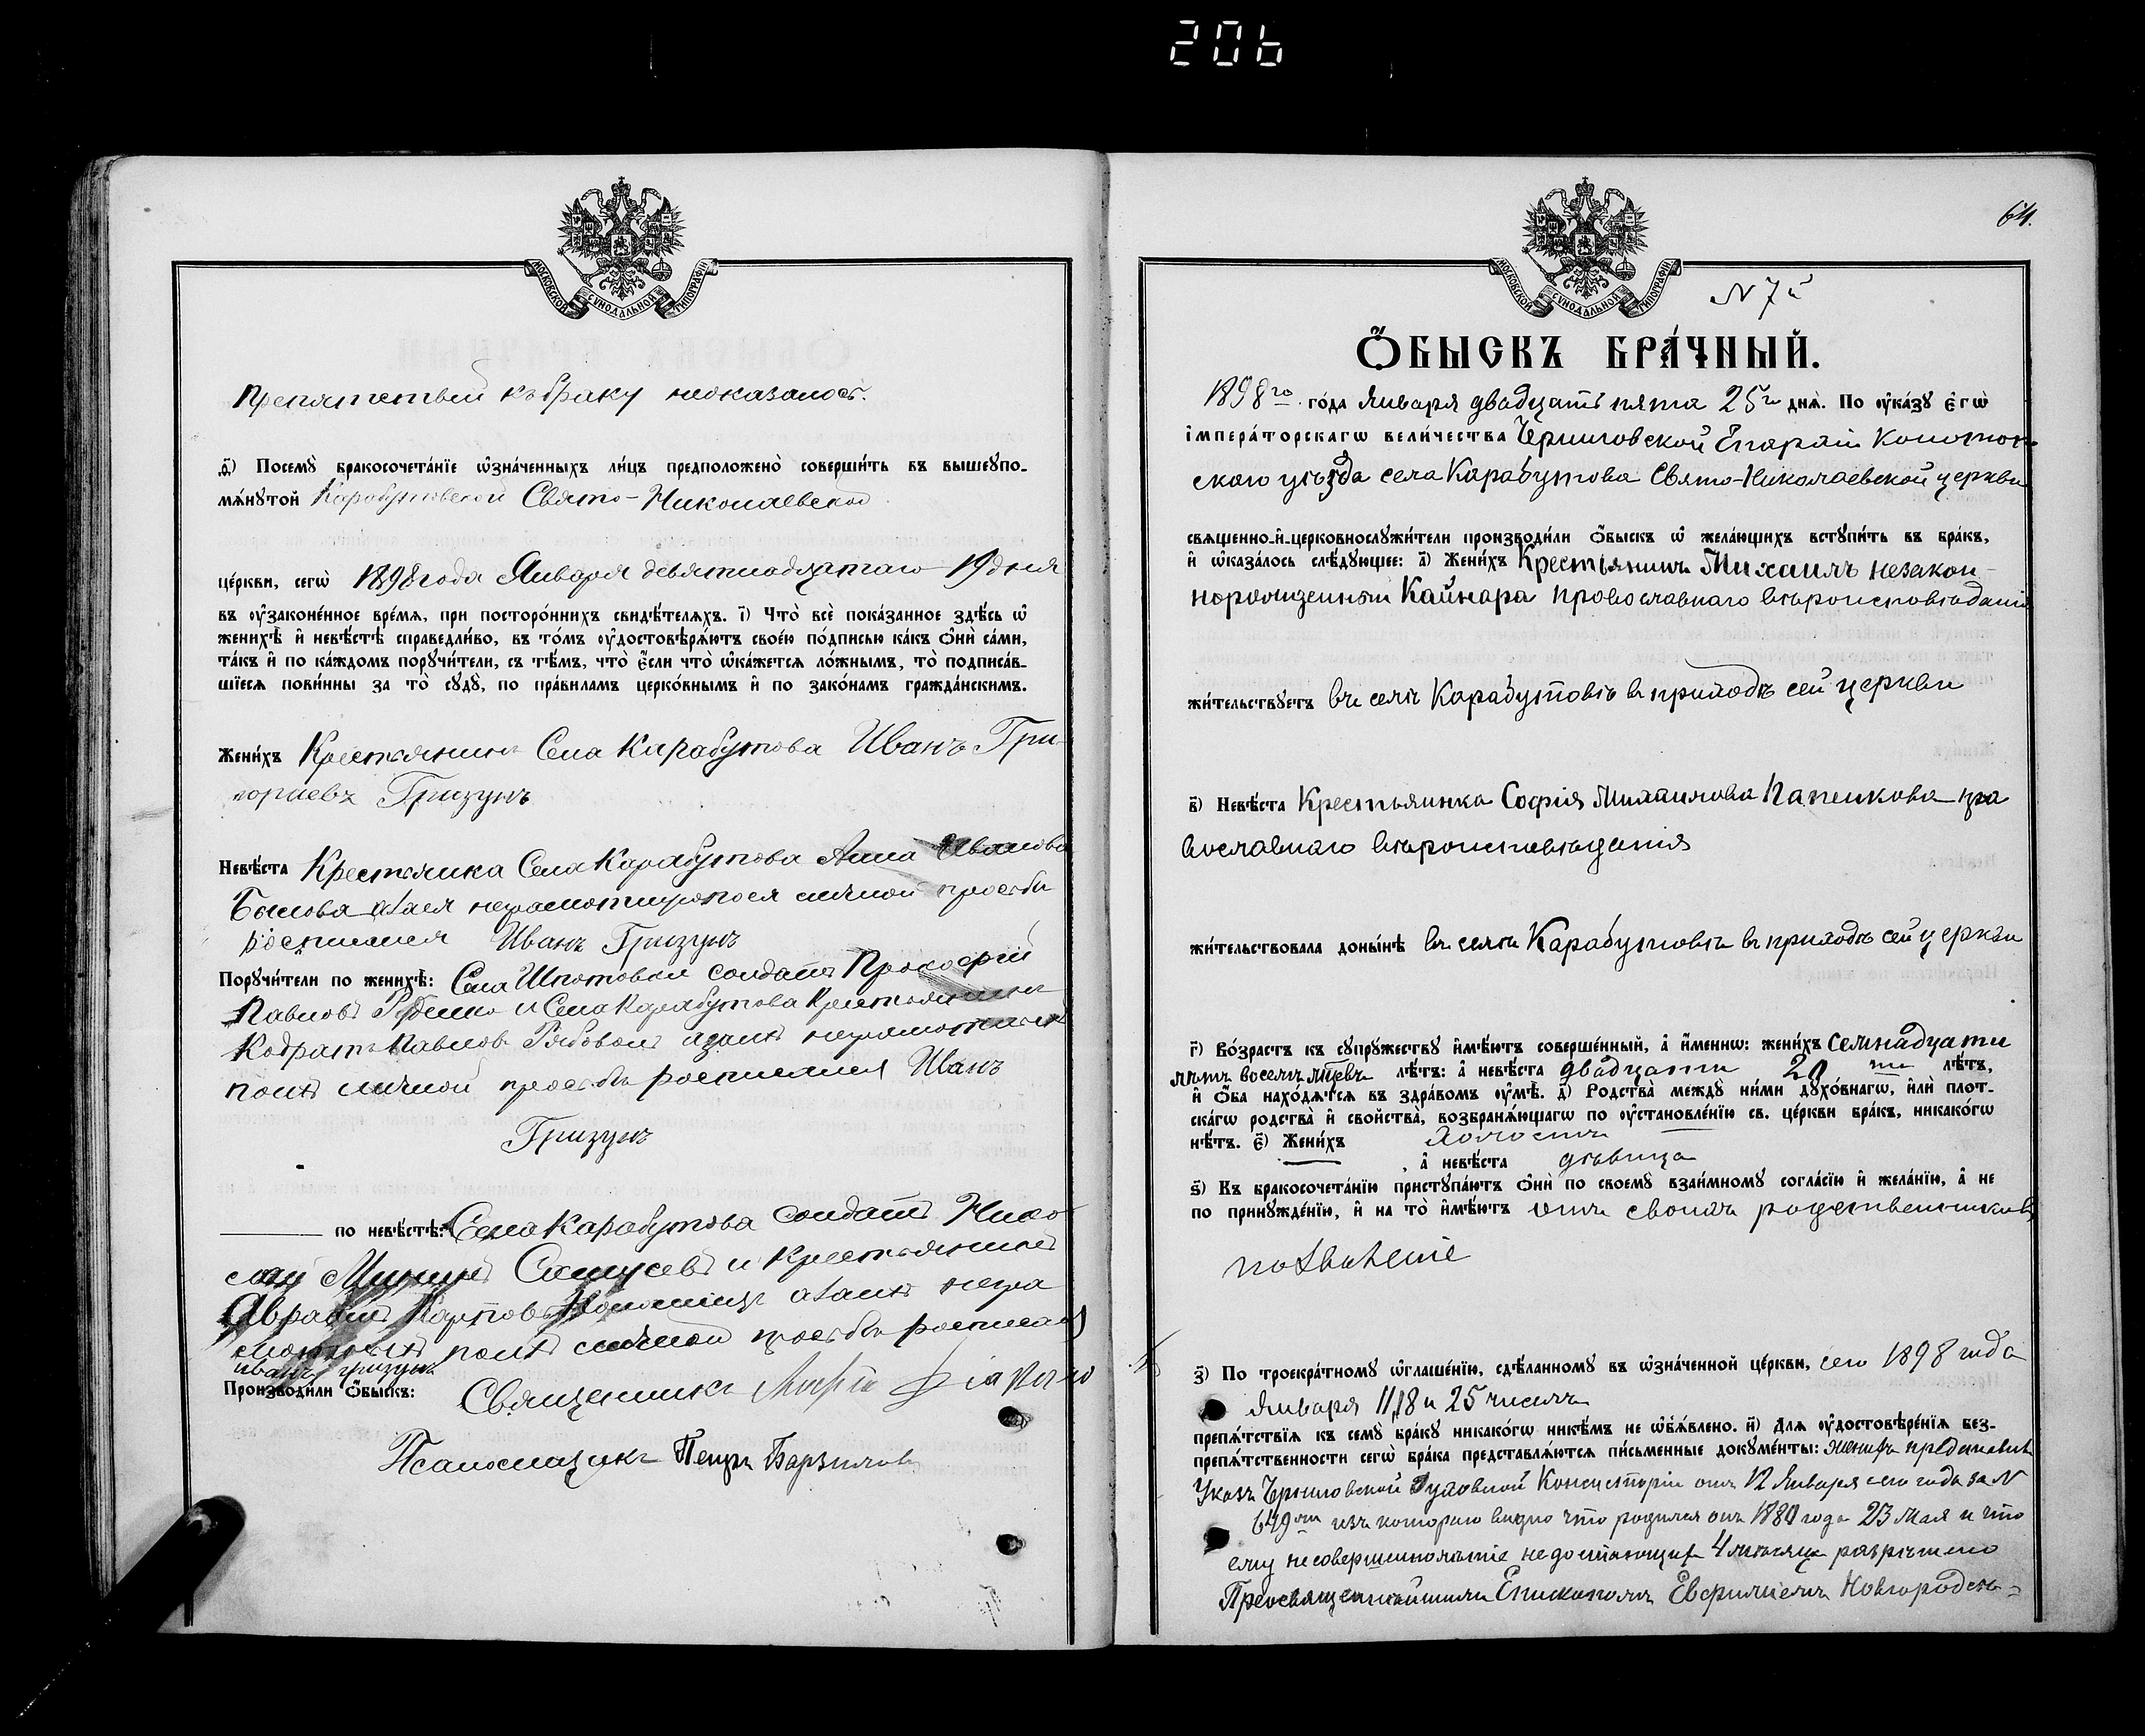 206
МОСКОВСКОЙ СѴНОДАЛЬНОЙ ТИПОГРАФІИ
Препятствій къ браку неоказалось.
ѳ҃) Посемꙋ̀ бракосочета́нїе ѡ҆зна́ченныхъ ли́цъ предположено̀ соверши́ть въ вышеꙋпо-
мѧ́нꙋтой Карабутовской Свято-Николаевской
це́ркви, сегѡ̀ 1898 года Января девятнадцатаго 19 дня
въ ᲂу҆зако́ненное вре́мя, при посторо́ннихъ свидѣ́теляхъ. і҃) Что̀ всѐ пока́занное здѣ́сь ѡ҆
женихѣ̀ и҆ невѣ́стѣ справедли́во, въ то́мъ ᲂу҆достовѣрѧ́ютъ свое́ю по́дписью ка́къ ѻ҆нѝ са́ми,
та́къ и҆ по ка́ждомъ порꙋчи́тели, съ тѣ́мъ, что̀ є҆́сли что̀ ѡ҆ка́жется ло́жнымъ, то̀ подписа́в-
шїеся пови́нны за то̀ сꙋдꙋ̀, по пра́виламъ церко́внымъ и҆ по зако́намъ гражда́нскимъ.
Жени́хъ Крестьянинъ Села Карабутова Иванъ Гри-
горіевъ Гризунъ
Невѣ́ста Крестьянка Села Карабутова Анна Иванова
Быкова а за ея неграмотную по ея личной просьбѣ
росписался Иванъ Гризунъ
Порꙋчи́тели по женихѣ̀: Села солдатъ Прокофій
Павловъ и Села Карабутова Крестьянинъ
Кодратъ Павловъ а за нихъ неграмотныхъ
по ихъ личной просьбѣ росписался Иванъ
Гризунъ
по невѣ́стѣ: Села Карабутова солдатъ Нико-
лай и Крестьянинъ
Карповъ а за ихъ негра
мотныхъ по ихъ личной просьбѣ росписался
Иванъ Гризунъ
Производи́ли ѻ҆́быскъ: Священникъ
Псаломщикъ Петръ Барзиловъ
64.
МОСКОВСКОЙ СѴНОДАЛЬНОЙ ТИПОГРАФІИ
N 7й
Ѻ҆́БЫСКЪ БРА́ЧНЫЙ.
1898го го́да Января двадцать пята 25го днѧ̀. По ᲂу҆ка́зꙋ є҆гѡ̀
і҆мпера́торскагѡ вели́чества Черниговской Епархіи Конотоп-
скаго уѣзда села Карабутова Свято-Николаевской церкви
свяще́нно-и҆-церковнослꙋжи́тели производи́ли ѻ҆́быскъ ѡ҆ жела́ющихъ встꙋпи́ть въ бра́къ,
и҆ ѡ҆каза́лось слѣ́дꙋющее: а҃) Жени́хъ Крестьянинъ Михаилъ незакон-
норожденный Кайнара провославнаго вѣроисповѣданія
жи́тельствꙋетъ въ селѣ Карабутовѣ въ приходѣ сей церкви
в҃) Невѣ́ста Крестьянка Софія Папенкова пра
вославнаго вѣроисповѣданія
жи́тельствовала доны́нѣ въ селѣ Карабутовѣ въ приходѣ сей церкви
г҃) Во́зрастъ къ сꙋпрꙋ́жествꙋ и҆мѣ́ютъ соверше́нный, а҆ и҆́менно: жени́хъ семнадцати
лѣтъ восемь мѣсяцевъ лѣ́тъ: а҆ невѣ́ста двадцати 20 ти лѣ́тъ,
и҆ ѻ҆́ба нахо́дятся въ здра́вомъ ᲂу҆мѣ̀. д҃) Родства̀ междꙋ̀ ни́ми дꙋхо́внагѡ, и҆лѝ плот-
ска́гѡ родства̀ и҆ свойства̀, возбранѧ́ющагѡ по ᲂу҆становле́нїю св. це́ркви бра́къ, никако́гѡ
нѣ́тъ. є҃) Жени́хъ холостъ
, а҆ невѣ́ста дѣвица
ѕ҃) Къ бракосочета́нїю пристꙋпа́ютъ ѻ҆нѝ по своемꙋ̀ взаи́мномꙋ согла́сїю и҆ жела́нїю, а҆ не
по принꙋжде́нїю, и҆ на то̀ и҆мѣ́ютъ отъ своихъ родственниковъ
позволеніе
з҃) По троекра́тномꙋ ѡ҆глаше́нїю, сдѣ́ланномꙋ въ ѡ҆зна́ченной це́ркви, сего 1898 года
Января 11, 18 и 25 числъ
препѧ́тствїя къ семꙋ̀ бра́кꙋ никако́гѡ никѣ́мъ не ѡ҆б̾ѧ́влено. и҃) Для ᲂу҆достовѣре́нїя без-
препѧ́тственности сегѡ̀ бра́ка представлѧ́ются пи́сьменные докꙋме́нты: женихъ предъявилъ
Указъ Черниговской Духовной Консисторіи отъ 12 Января сего года за N
649 изъ котораго видно что родился онъ 1880 года 23 Мая и что
ему несовершеннолѣтіе недостающихъ 4 мѣсяца разрѣшено
Преосвященнѣйшимъ Епископомъ Евфиміемъ Новгородсѣ-